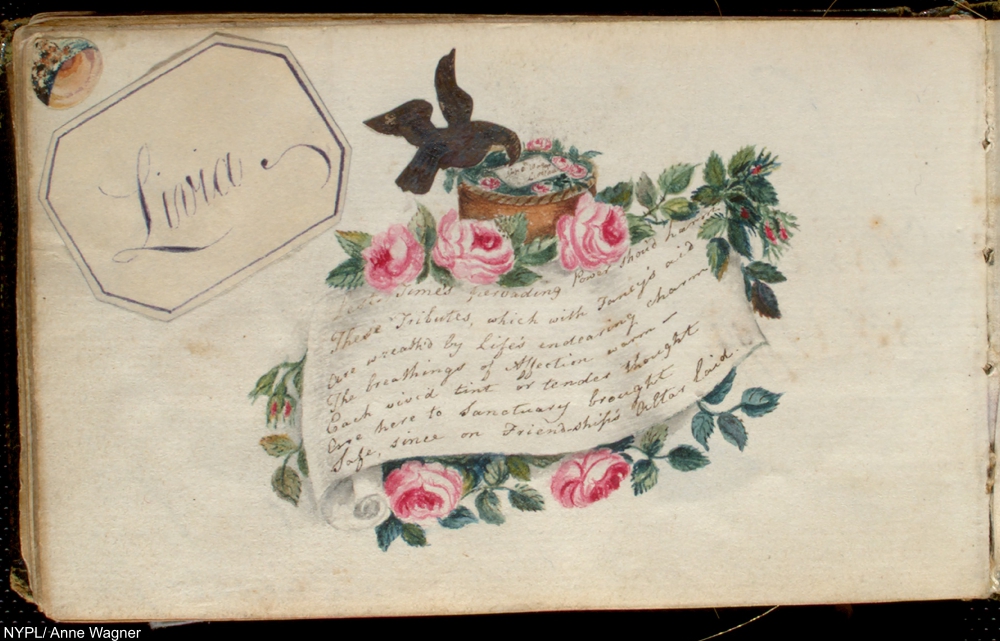 Livia
Time's pervading Power should harm
These Tributes, which with Fancy's aid
Are wreath'd by Life's endearing charm
The breathings of Affection warm—
Each vivid tint or tender thought
Are here to Sanctuary brought
Safe, since on Friendship's Altar laid.
NYPL/ Anne Wagner